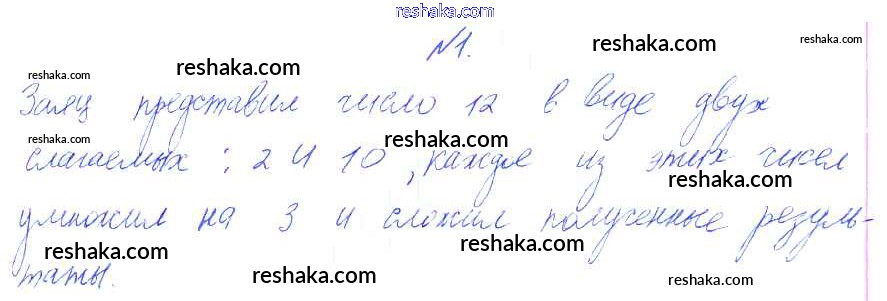 reshaka.com
№1.
reshaka.com
reshaka.com
reshaka.com
reshaka.com
Заяц представил число 12 в виде двух
reshaka.com
reshaka.com
слагаемых: 2 и 10, каждое из этих чисел
reshaka.com
умножил на 3 и сложил полученные резуль-
reshaka.com
reshaka.com
таты.
reshaka.com
reshaka.com